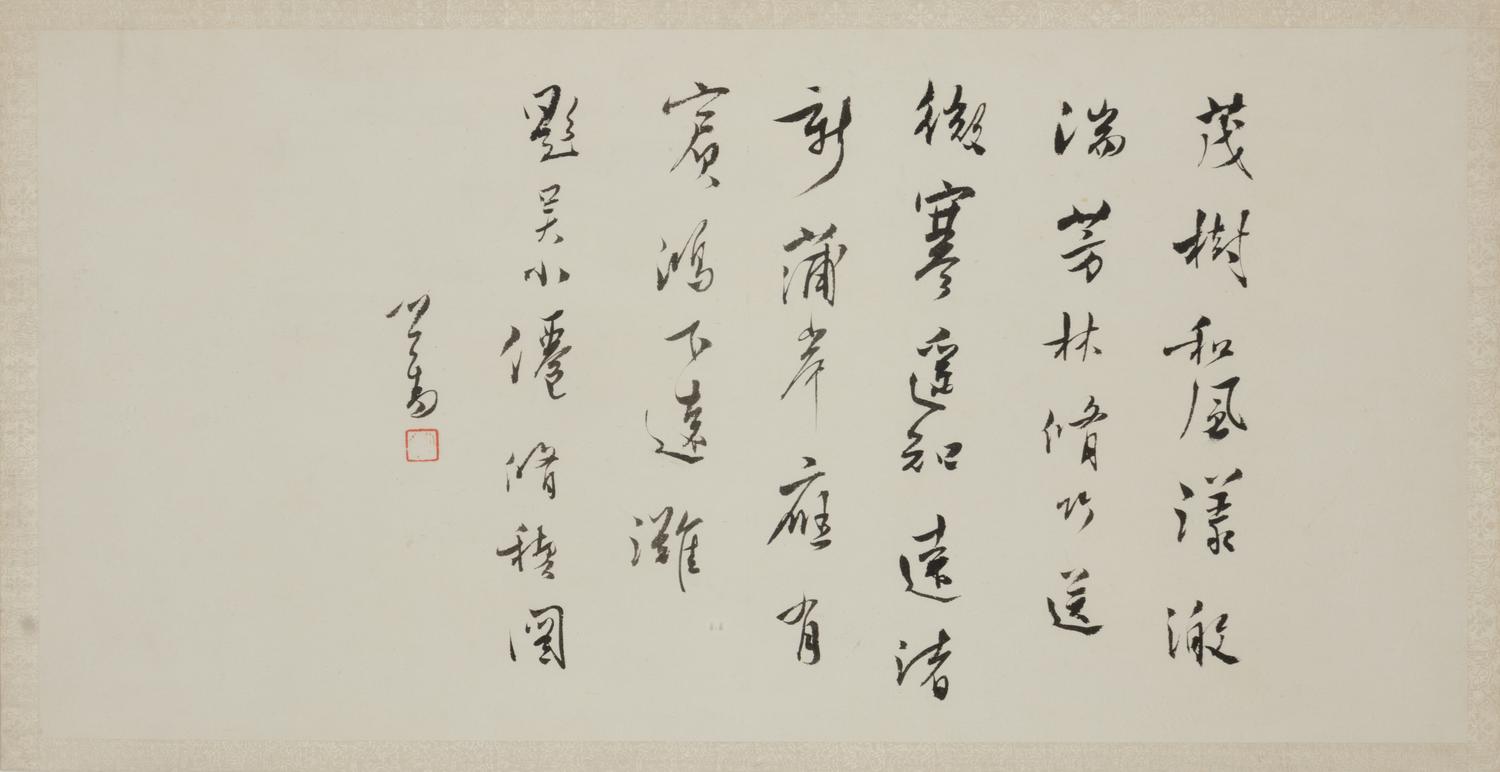 茂樹和風漾激
湍芳林脩竹送
微寒遥知渚
新蒲岸應有
賓鴻下遠灘
題吳小僊脩稧圖
心畬